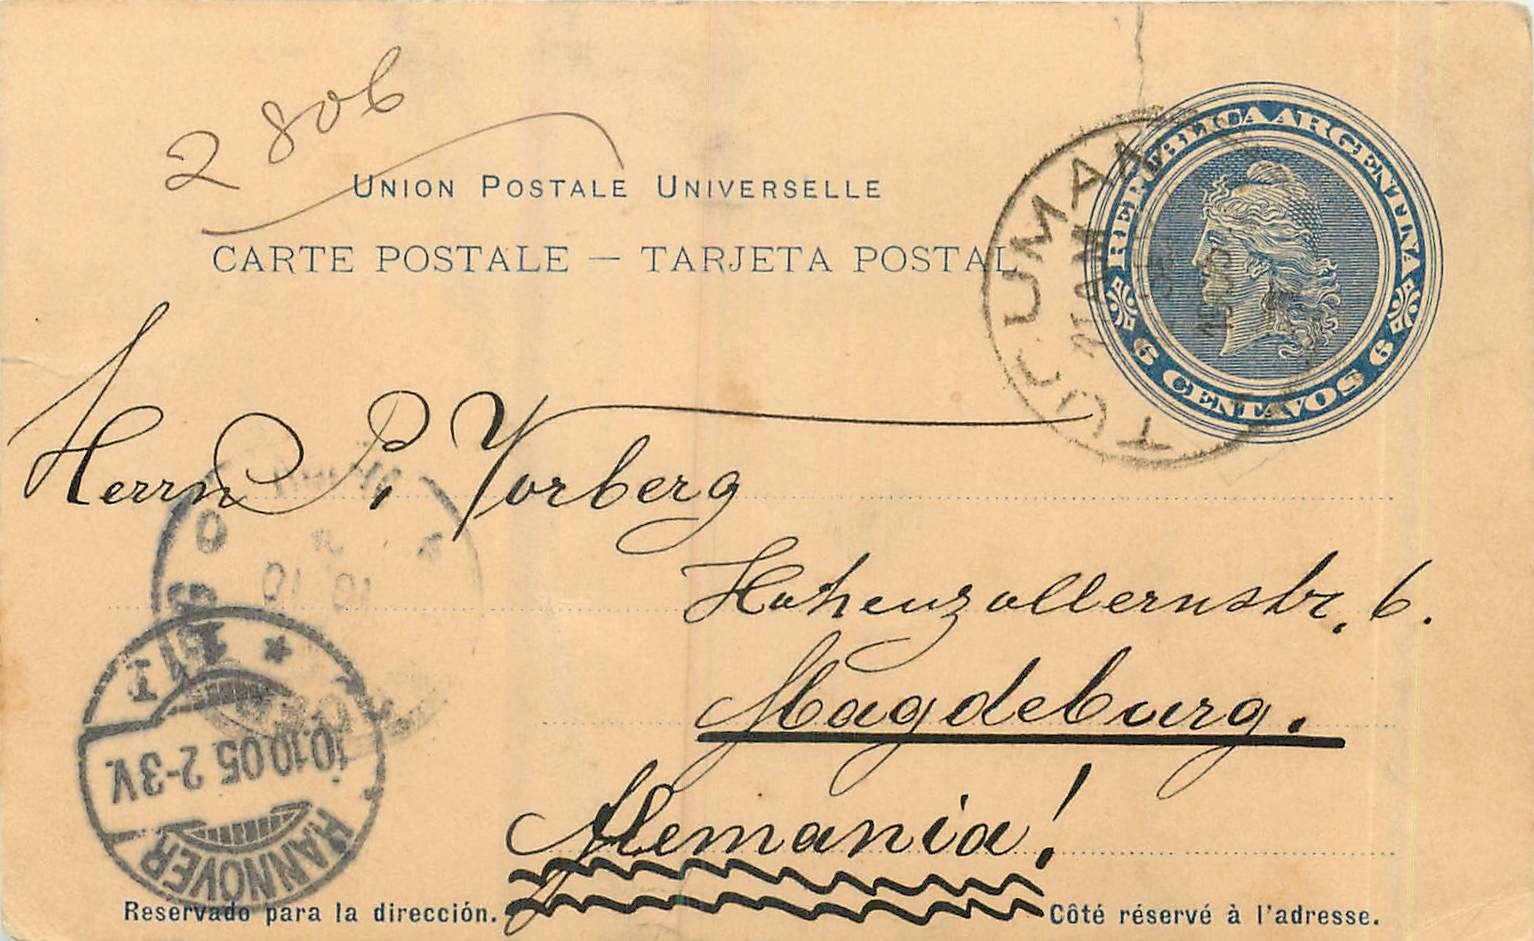 2806
UNION POSTALE UNIVERSELLE
CARTE POSTALE — TARJETA POSTAL
REPUBLICA ARGENTINA
6 CENTAVOS 6
TUCUMAN
Herrn P. Vorberg
Hohenzollernstr. 6.
Magdeburg.
Alemania!
HANNOVER
10.10.05 2-3V.
Reservado para la dirección.
Côté réservé à l'adresse.